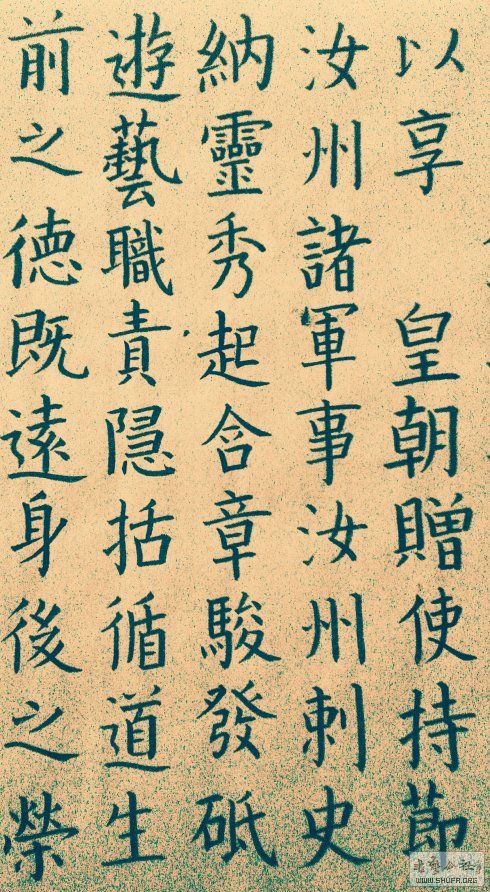 以享 皇朝贈使持節
汝州諸軍事汝州刺史
納靈秀起含章駿發砥
遊藝職責隱括循道生
前之德既遠身後之榮
WWW.SHUFA.ORG